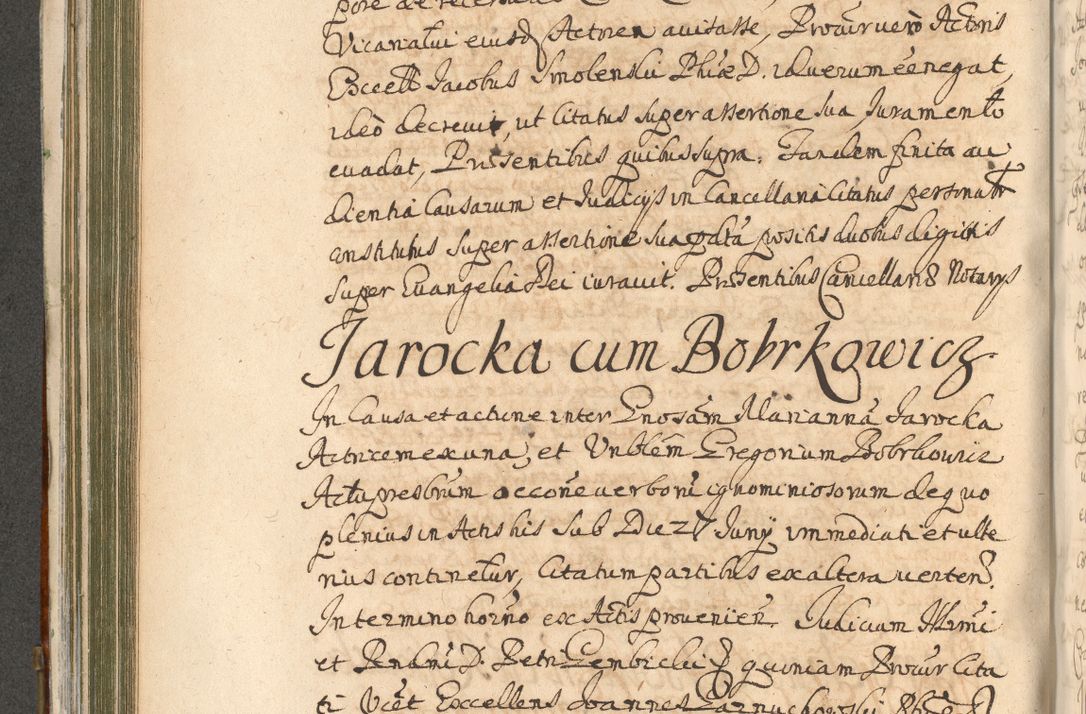 Vicariatui eiusd Actricem auitasse, Procur uero Actoris
Excell Jacobus Smolenski Phiæ D. id uerum eé negat,
ideò decreuit, ut Citatus super assertione sua Juramento
euadat, Præsentibus quibus supra. Tandem finita au
dientia Causarum et Judicijs in Cancellaria Citatus personatr
constitutus super assertione sua pdta positis duobus digitis
super Euangelia Dei iurauit. Præsentibus Cancellariæ Notarijs
Jarocka cum Bobrkowicz
In Causa et actione inter Gnosam Mariannã Jarocka
Actricem ex una, et Vnblem Gregorium Bobrkowicz
Actu presbrum occone uerborũ ignominiosorum de quo
plenius in Actis his sub Die 27 Junij immediati et ulte
rius continetur, Citatum partibus ex altera uerten.
In termino horno ex Actis prouenien. Judicium Illrmi
et Rendmi D. Petri Gembicki quoniam Procur Cita
ti Vicet Excellens Joannes